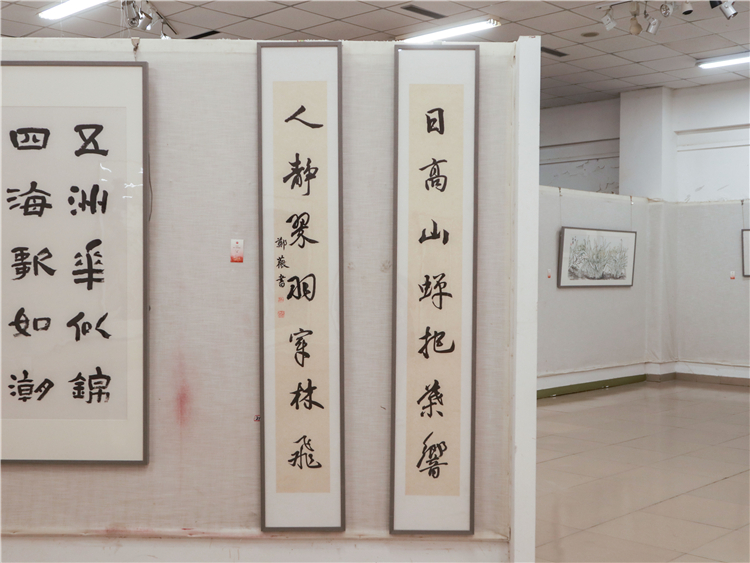 日高山蝉抱葉響
人静翠羽穿林飛
鄭薇書
五洲華似錦
四海歌如潮